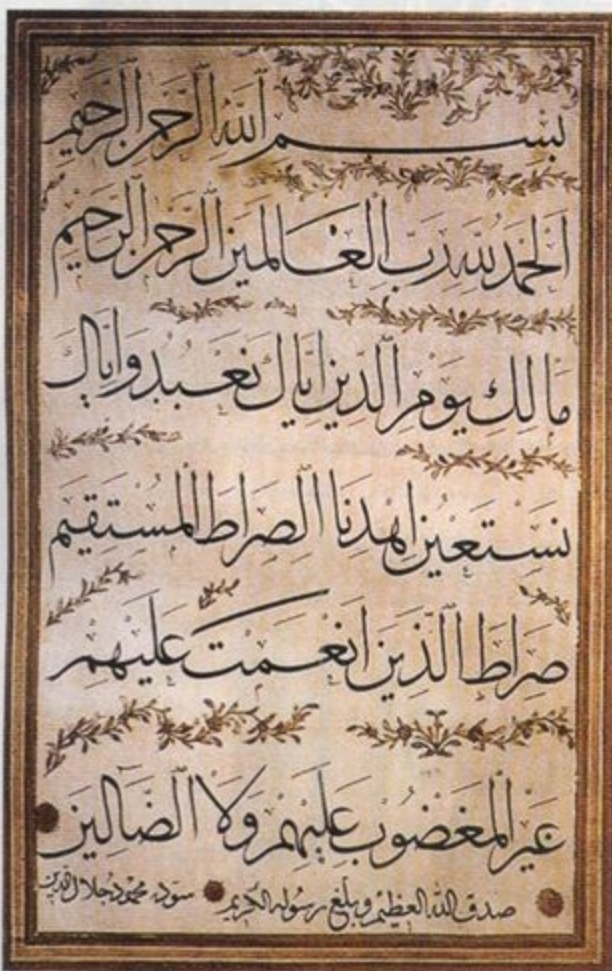 بسم الله الرحمن الرحيم
الحمد لله رب العالمين الرحمن الرحيم
مالك يوم الدين اياك نعبد واياك
نستعين اهدنا الصراط المستقيم
صراط الذين انعمت عليهم
غير المغضوب عليهم ولا الضالين
صدق الله العظيم وبلغ رسوله الكريم سوده محمود جلال الدين